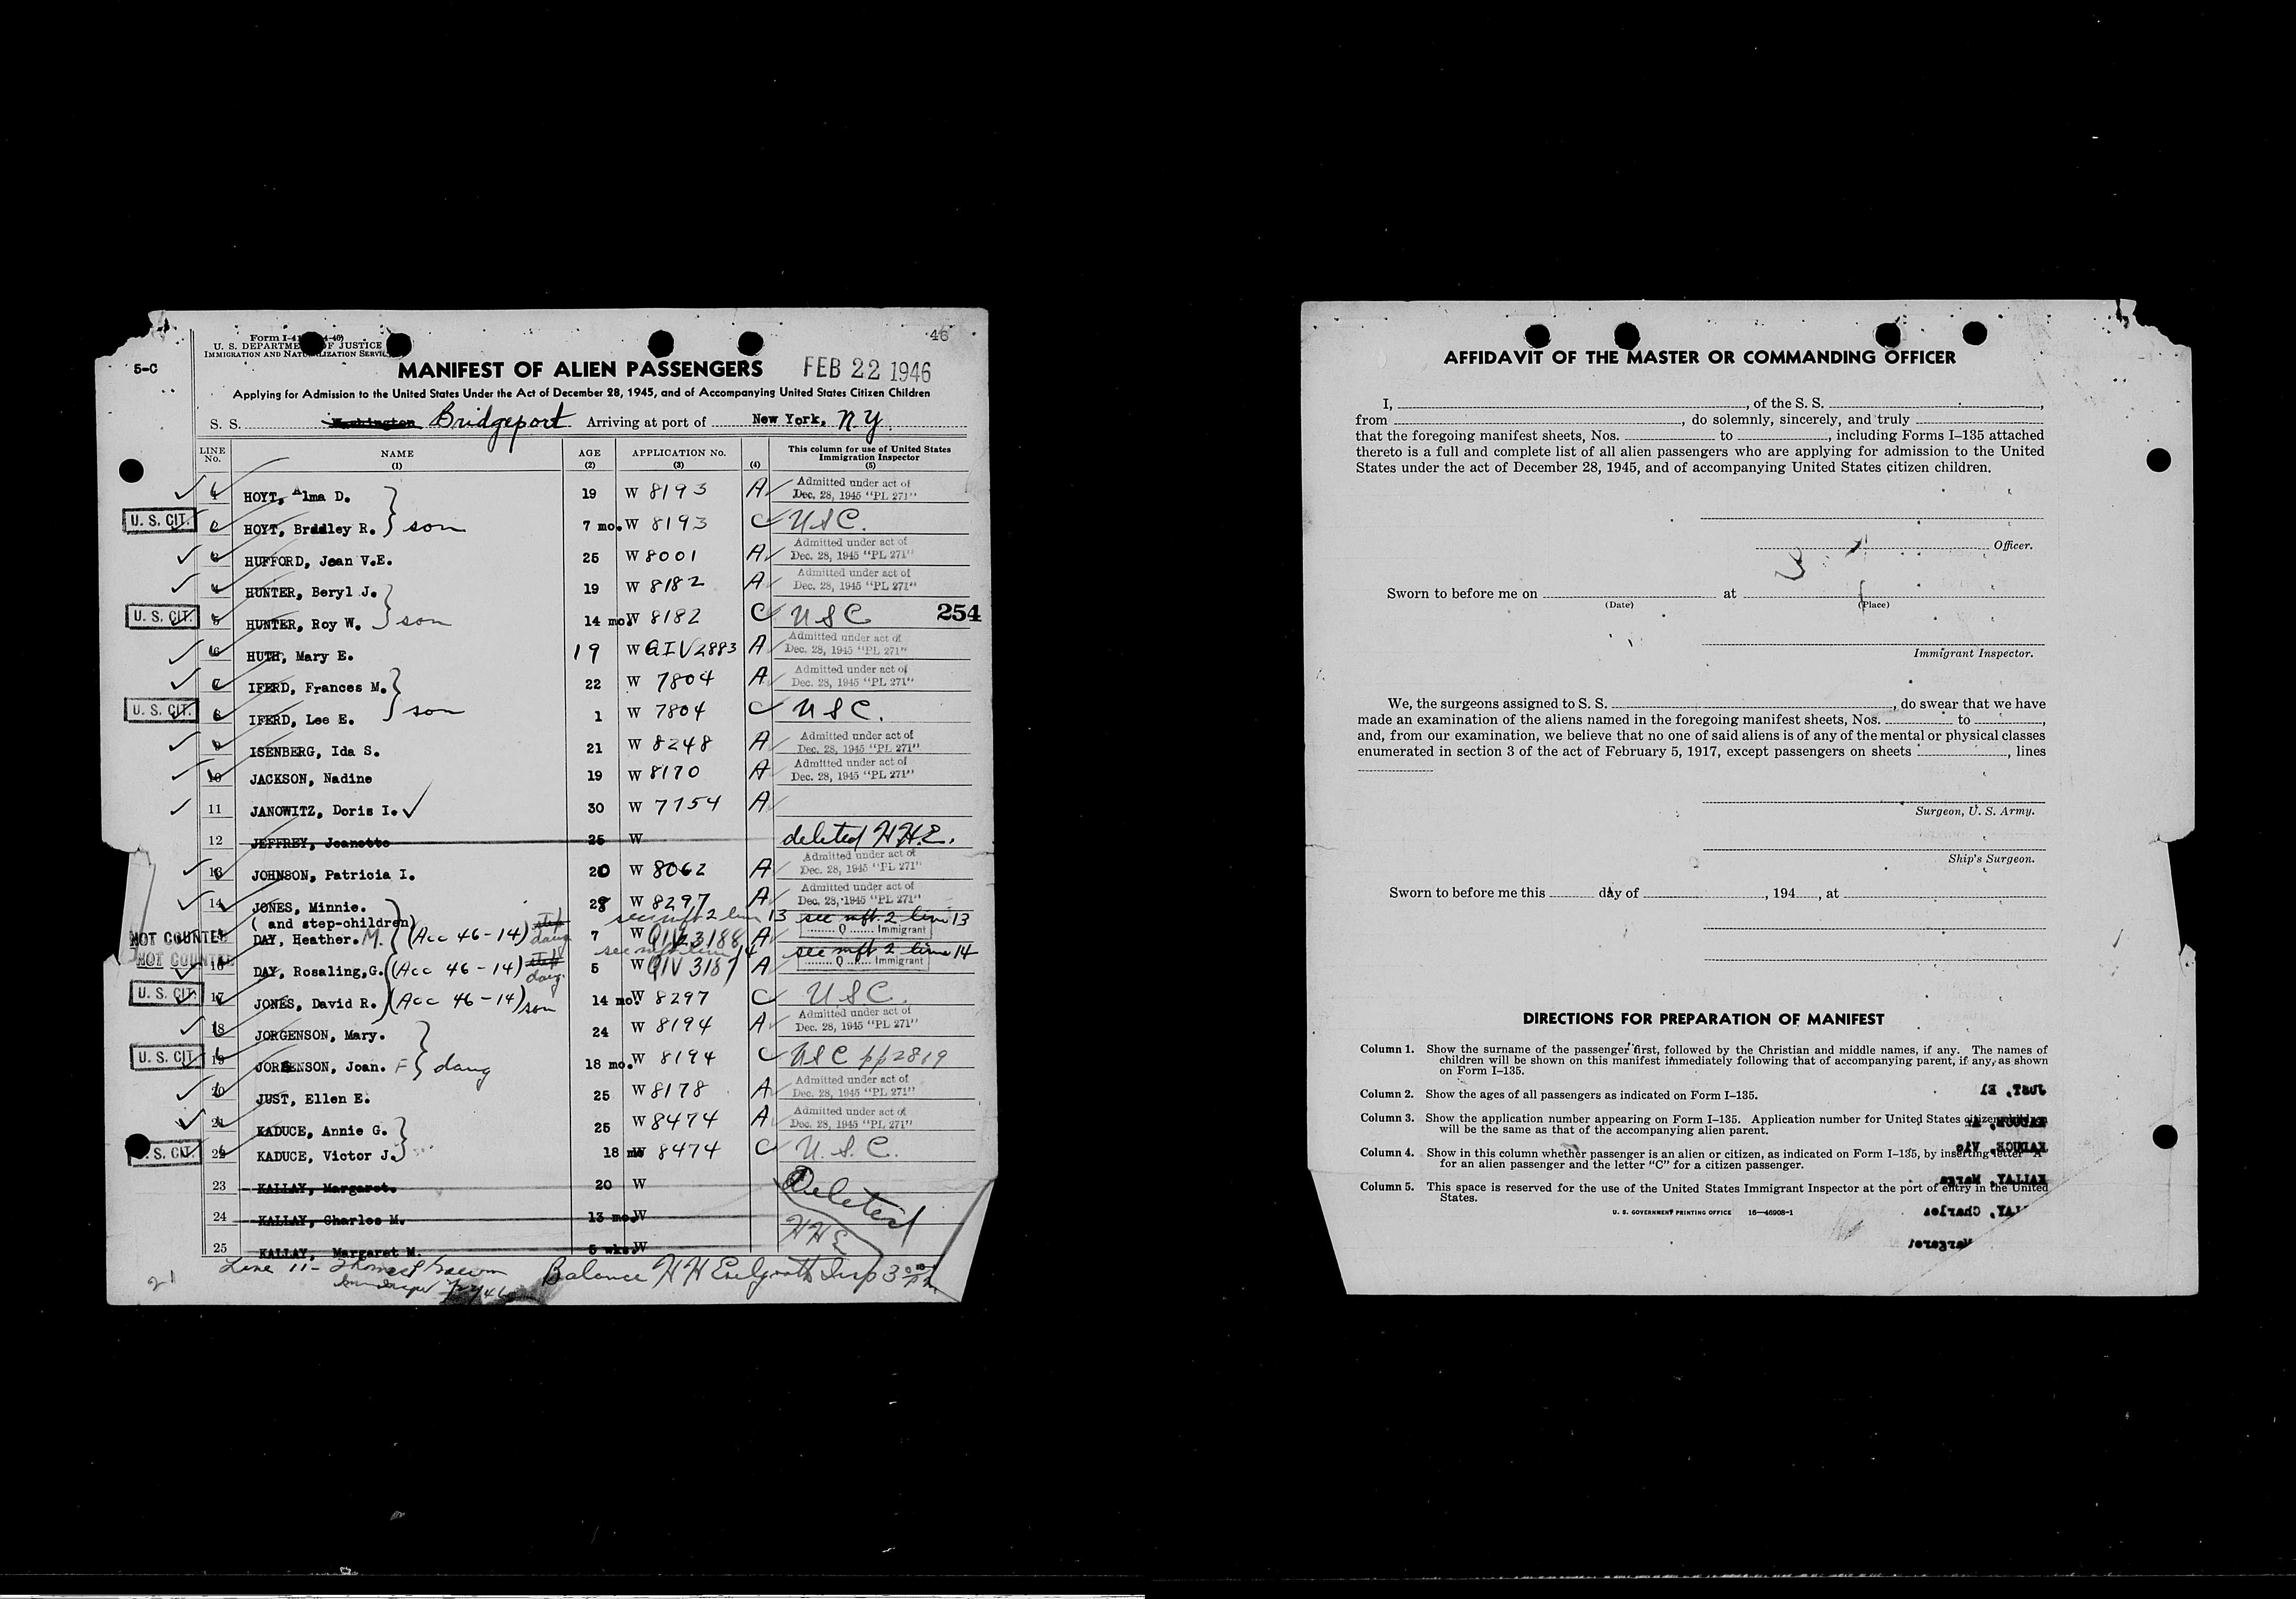 46
Form I-41
U. S. DEPARTMENT OF JUSTICE
IMMIGRATION AND NATURALIZATION SERVICE
5-C
MANIFEST OF ALIEN PASSENGERS FEB 22 1946
Applying for Admission to the United States Under the Act of December 28, 1945, and of Accompanying United States Citizen Children
S. S. Washington Bridgeport Arriving at port of New York, N.Y.
LINE No. NAME (1) AGE (2) APPLICATION No. (3) (4) This column for use of United States Immigration Inspector (5)
1 HOYT, Alma D. 19 W 8193 A Admitted under act of Dec. 28, 1945 "PL 271"
U. S. CIT. 2 HOYT, Bradley R. son 7 mo. W 8193 C USC.
3 HUFFORD, Jean V.E. 25 W 8001 A Admitted under act of Dec. 28, 1945 "PL 271"
4 HUNTER, Beryl J. 19 W 8182 A Admitted under act of Dec. 28, 1945 "PL 271"
U. S. CIT. 5 HUNTER, Roy W. son 14 mo. W 8182 C USC 254
6 HUTH, Mary E. 19 W QIV2883 A Admitted under act of Dec. 28, 1945 "PL 271"
7 IFERD, Frances M. 22 W 7804 A Admitted under act of Dec. 28, 1945 "PL 271"
U. S. CIT. 8 IFERD, Lee E. son 1 W 7804 C USC.
9 ISENBERG, Ida S. 21 W 8248 A Admitted under act of Dec. 28, 1945 "PL 271"
10 JACKSON, Nadine 19 W 8170 A Admitted under act of Dec. 28, 1945 "PL 271"
11 JANOWITZ, Doris I. 30 W 7754 A
12 JEFFREY, Jeanette 25 W deleted H.H.E.
13 JOHNSON, Patricia I. 20 W 8062 A Admitted under act of Dec. 28, 1945 "PL 271"
14 JONES, Minnie. 28 W 8297 A Admitted under act of Dec. 28, 1945 "PL 271"
( and step-children) see mft 2 line 13 see mft. 2 line 13
NOT COUNTED 15 DAY, Heather. M. (Acc 46-14) step daug 7 W QIV 3188 A Q Immigrant
see mft line 14 see mft 2 line 14
NOT COUNTED 16 DAY, Rosaling, G. (Acc 46-14) step daug. 5 W QIV 3187 A Q Immigrant
U. S. CIT. 17 JONES, David R. (Acc 46-14) son 14 mo. W 8297 C U.S.C.
18 JORGENSON, Mary. 24 W 8194 A Admitted under act of Dec. 28, 1945 "PL 271"
U. S. CIT. 19 JORGENSON, Joan. F daug 18 mo. W 8194 C USC pp2819
20 JUST, Ellen E. 25 W 8178 A Admitted under act of Dec. 28, 1945 "PL 271"
21 KADUCE, Annie G. 25 W 8474 A Admitted under act of Dec. 28, 1945 "PL 271"
U. S. CIT. 22 KADUCE, Victor J. 18 mo W 8474 C U.S.C.
23 KALLAY, Margaret. 20 W Deleted
24 KALLAY, Charles M. 13 mo. W HHE
25 KALLAY, Margaret M. 5 wks. W
Line 11- Balance H H Insp 3
21
AFFIDAVIT OF THE MASTER OR COMMANDING OFFICER
I, , of the S. S. ,
from , do solemnly, sincerely, and truly
that the foregoing manifest sheets, Nos. to , including Forms I-135 attached
thereto is a full and complete list of all alien passengers who are applying for admission to the United
States under the act of December 28, 1945, and of accompanying United States citizen children.
Officer.
Sworn to before me on at
(Date) (Place)
Immigrant Inspector.
We, the surgeons assigned to S. S. , do swear that we have
made an examination of the aliens named in the foregoing manifest sheets, Nos. to ,
and, from our examination, we believe that no one of said aliens is of any of the mental or physical classes
enumerated in section 3 of the act of February 5, 1917, except passengers on sheets , lines
Surgeon, U. S. Army.
Ship's Surgeon.
Sworn to before me this day of , 194 , at
DIRECTIONS FOR PREPARATION OF MANIFEST
Column 1. Show the surname of the passenger first, followed by the Christian and middle names, if any. The names of
children will be shown on this manifest immediately following that of accompanying parent, if any, as shown
on Form I-135.
Column 2. Show the ages of all passengers as indicated on Form I-135.
Column 3. Show the application number appearing on Form I-135. Application number for United States citizen children
will be the same as that of the accompanying alien parent.
Column 4. Show in this column whether passenger is an alien or citizen, as indicated on Form I-135, by inserting letter "A"
for an alien passenger and the letter "C" for a citizen passenger.
Column 5. This space is reserved for the use of the United States Immigrant Inspector at the port of entry in the United
States.
U. S. GOVERNMENT PRINTING OFFICE 16-46908-1